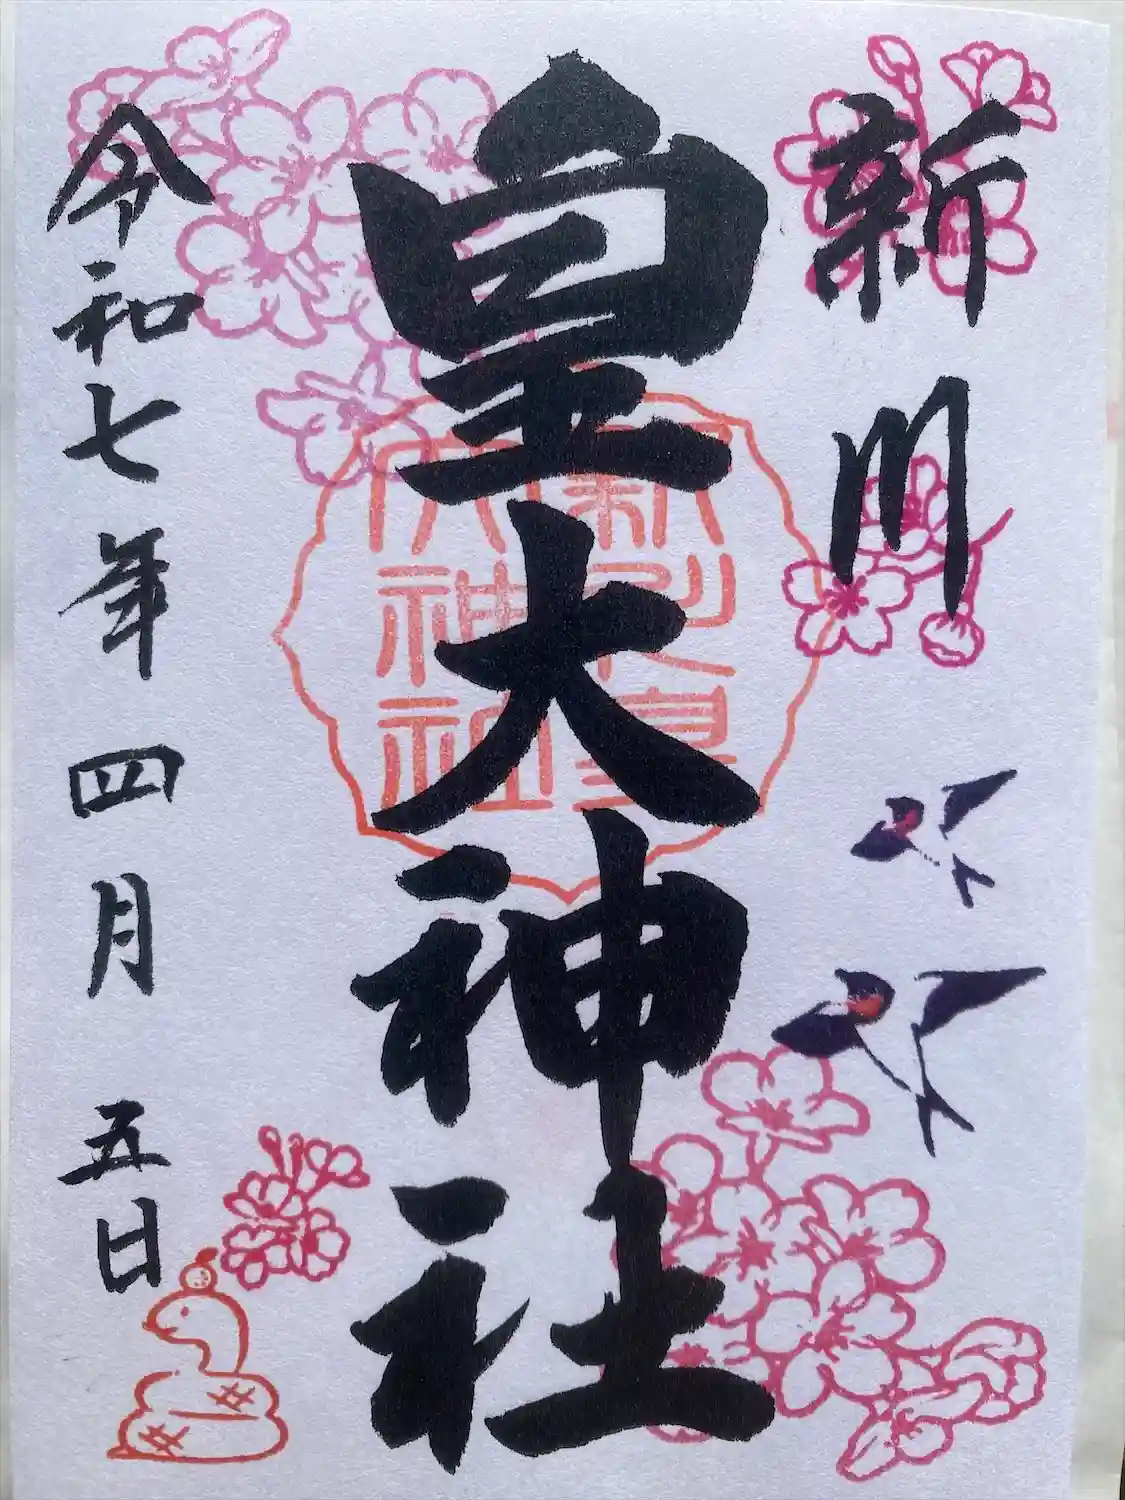 新川
皇大神社
大神社
令和七年四月五日